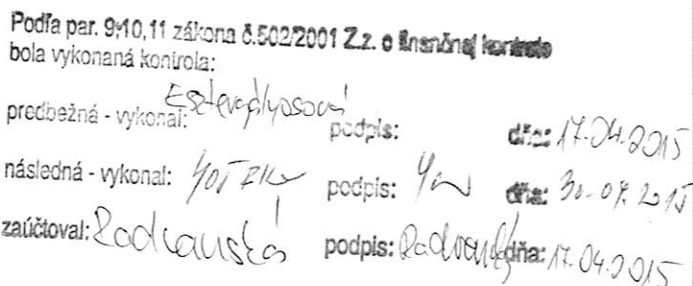 Podľa par. 9,10,11 zákona č.502/2001 Z.z. o finančnej kontrole
bola vykonaná kontrola:
predbežná - vykonal: podpis: dňa: 17.04.2015
následná - vykonal: podpis: dňa:
zaúčtoval: Radvanská podpis: Radvanská dňa: 17.04.2015